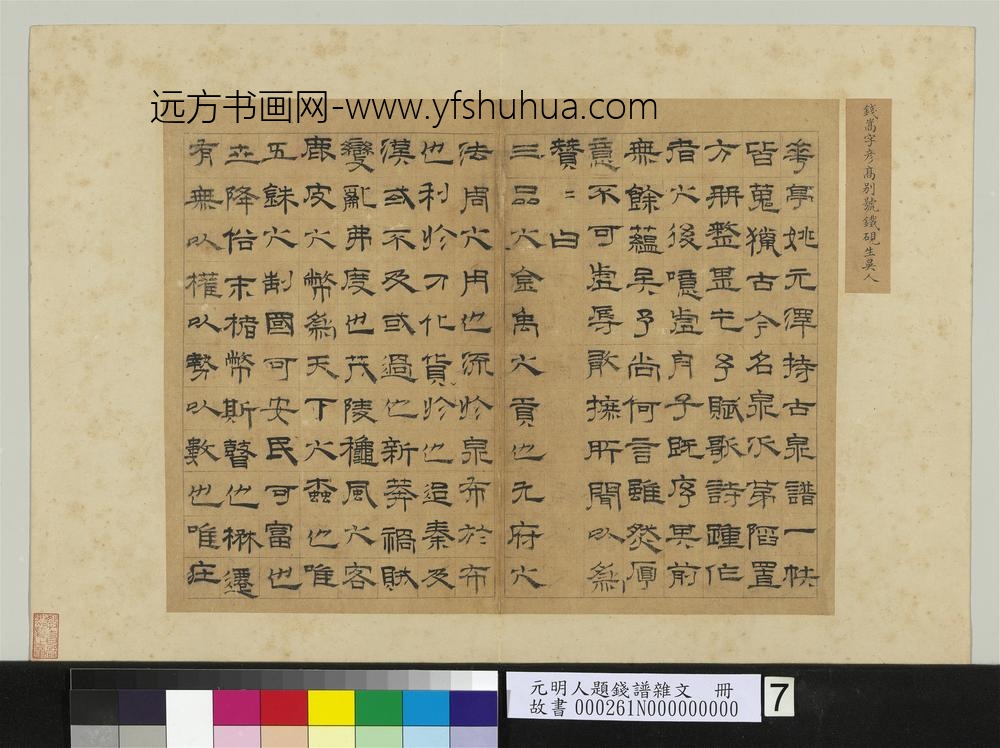 远方书画网-www.yfshuhua.com
錢嵩字彥高別號鐵硯生吳人
華亭姚元澤持古泉譜一帙
皆蒐獵古今名泉次第陷置
方冊整畢乞予賦歌詩踵作
者之後噫虛舟子既序其前
無餘蘊矣予尚何言雖然厚
意不可虛辱敢摭所聞以為
贊〻曰
三品之金禹之貢也九府之
法周之用也流於泉布於布
也利於刀化貨於也迨秦及
漢或不及或過也新莽禍賊
變亂弗度也茂陵風之客
鹿皮之幣為天下之蠹也唯
五銖之制國可安民可富也
世降俗末楮幣斯瞽也楙遷
有無以權以勢以數也唯在
元明人題錢譜雜文 冊
故書 000261N000000000
7